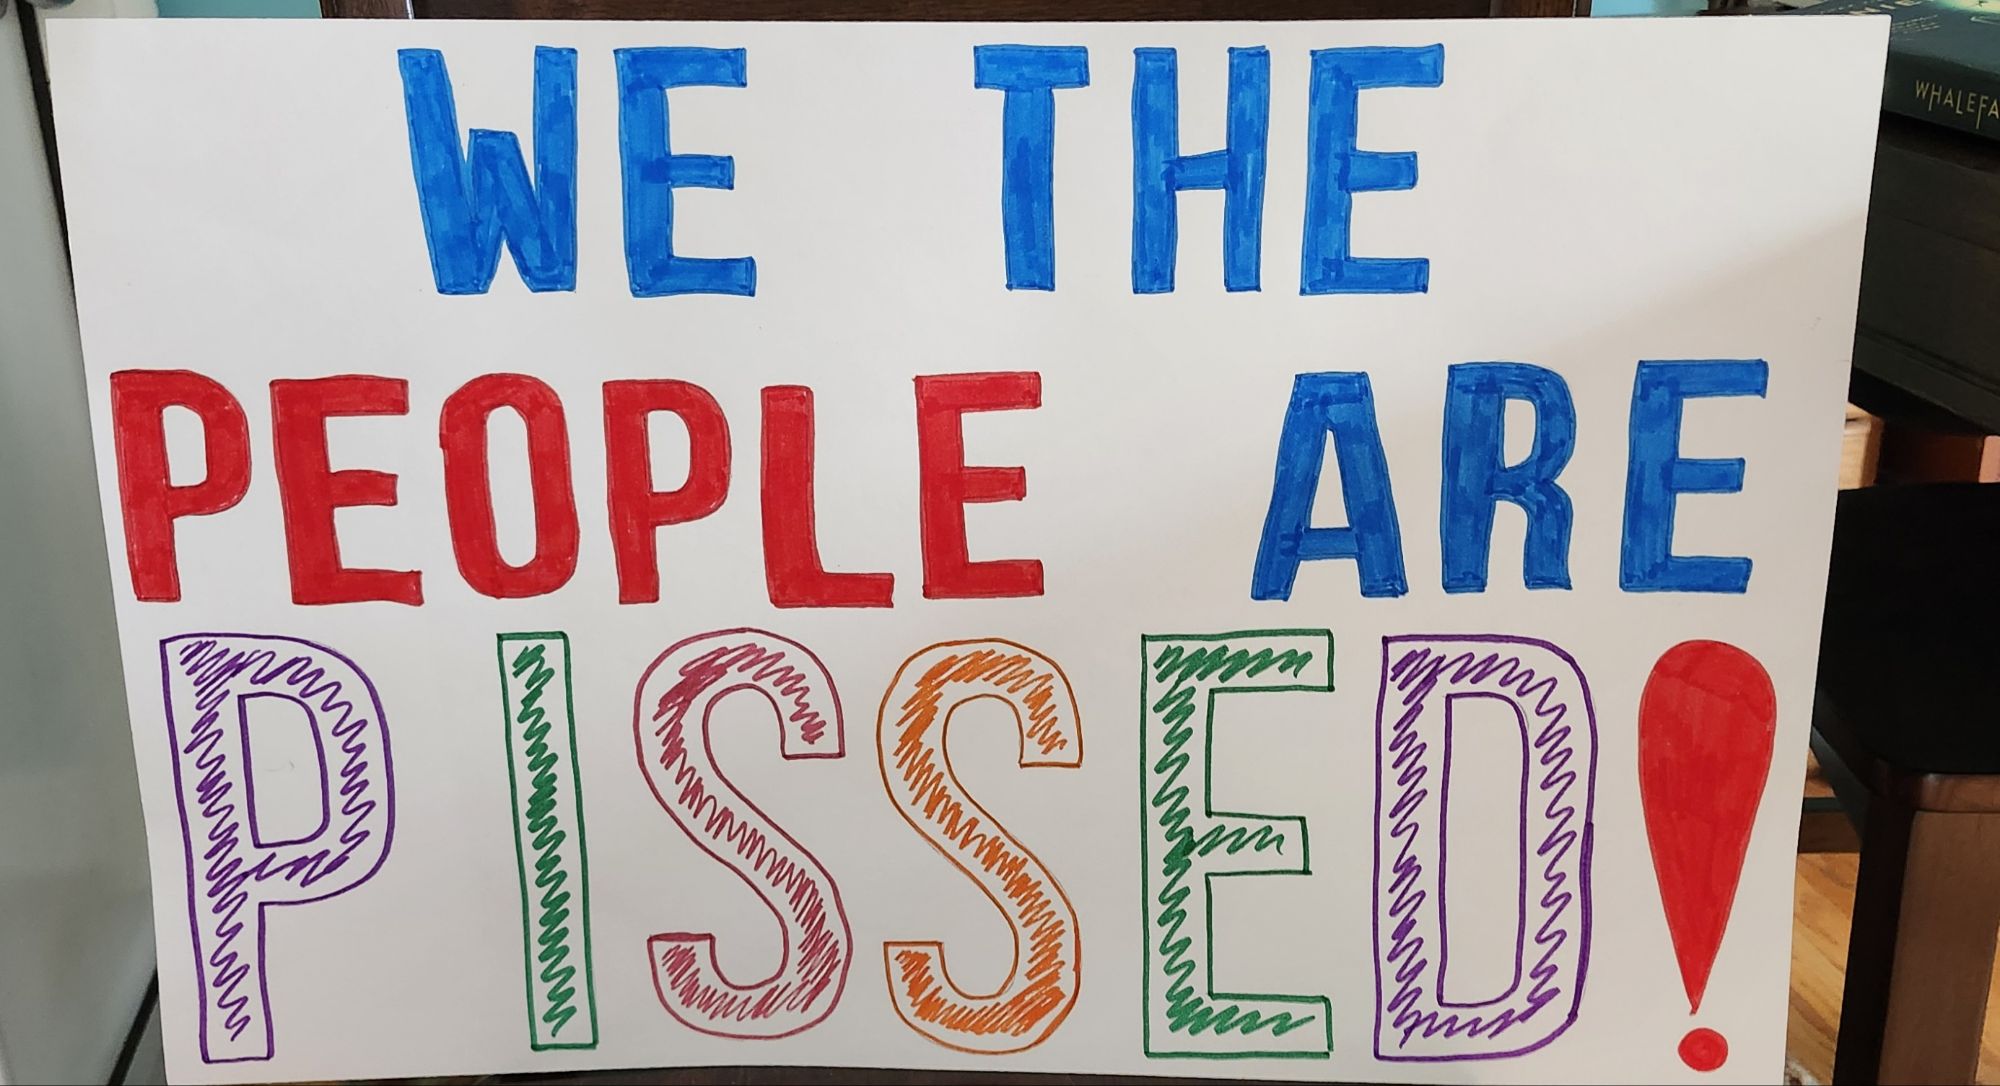 WE THE
PEOPLE ARE
PISSED!